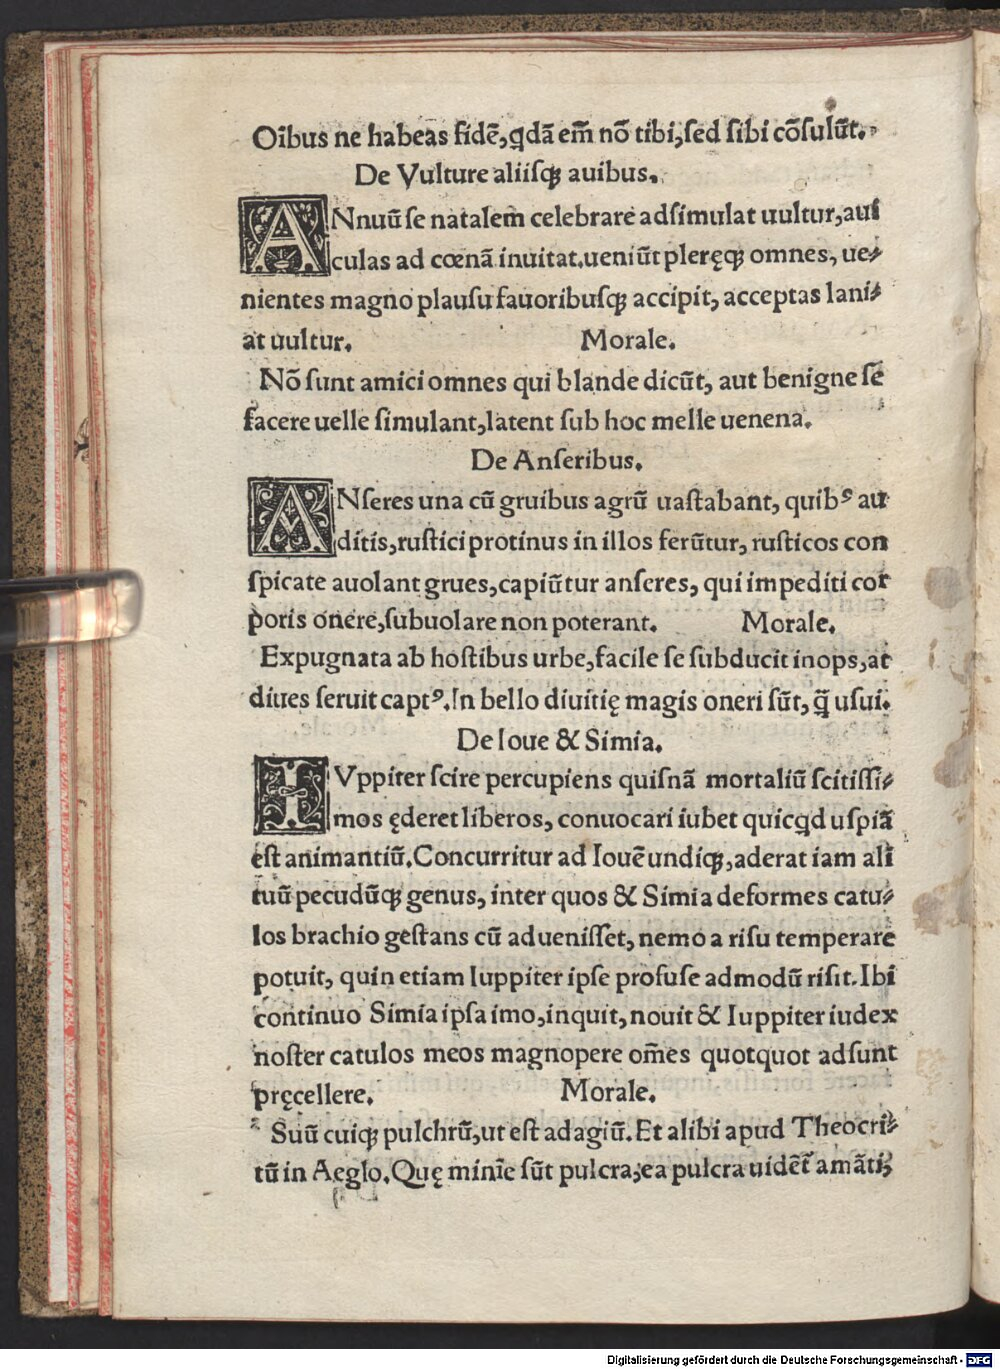 Oībus ne habeas fidē,qdā em̄ nō tibi,sed sibi cōsulūt.
De Vulture aliisq; auibus.
ANnuū se natalem celebrare adsimulat uultur,aui
culas ad cœnā inuitat.ueniūt pleręq; omnes, ue-
nientes magno plausu fauoribusq; accipit, acceptas lani-
at uultur. Morale.
Nō sunt amici omnes qui blande dicūt, aut benigne se
facere uelle simulant,latent sub hoc melle uenena.
De Anseribus.
ANseres una cū gruibus agrū uastabant, quibꝰ au
ditis,rustici protinus in illos ferūtur, rusticos con
spicate auolant grues,capiūtur anseres, qui impediti cor
poris onere,subuolare non poterant. Morale.
Expugnata ab hostibus urbe,facile se subducit inops,at
diues seruit captꝰ.In bello diuitię magis oneri sūt, q̄ usui.
De Ioue & Simia.
IVppiter scire percupiens quisnā mortaliū scitissi-
mos ęderet liberos, conuocari iubet quicqd uspiā
est animantiū.Concurritur ad Iouē undiq;,aderat iam ali
tuū pecudūq; genus, inter quos & Simia deformes catu-
los brachio gestans cū aduenisset, nemo a risu temperare
potuit, quin etiam Iuppiter ipse profuse admodū risit.Ibi
continuo Simia ipsa imo,inquit,nouit & Iuppiter iudex
noster catulos meos magnopere om̄es quotquot adsunt
pręcellere. Morale.
Suū cuiq; pulchrū,ut est adagiū.Et alibi apud Theocri-
tū in Aeglo.Quę minīe sūt pulcra,ea pulcra uidēt amāti,
Digitalisierung gefördert durch die Deutsche Forschungsgemeinschaft - DFG